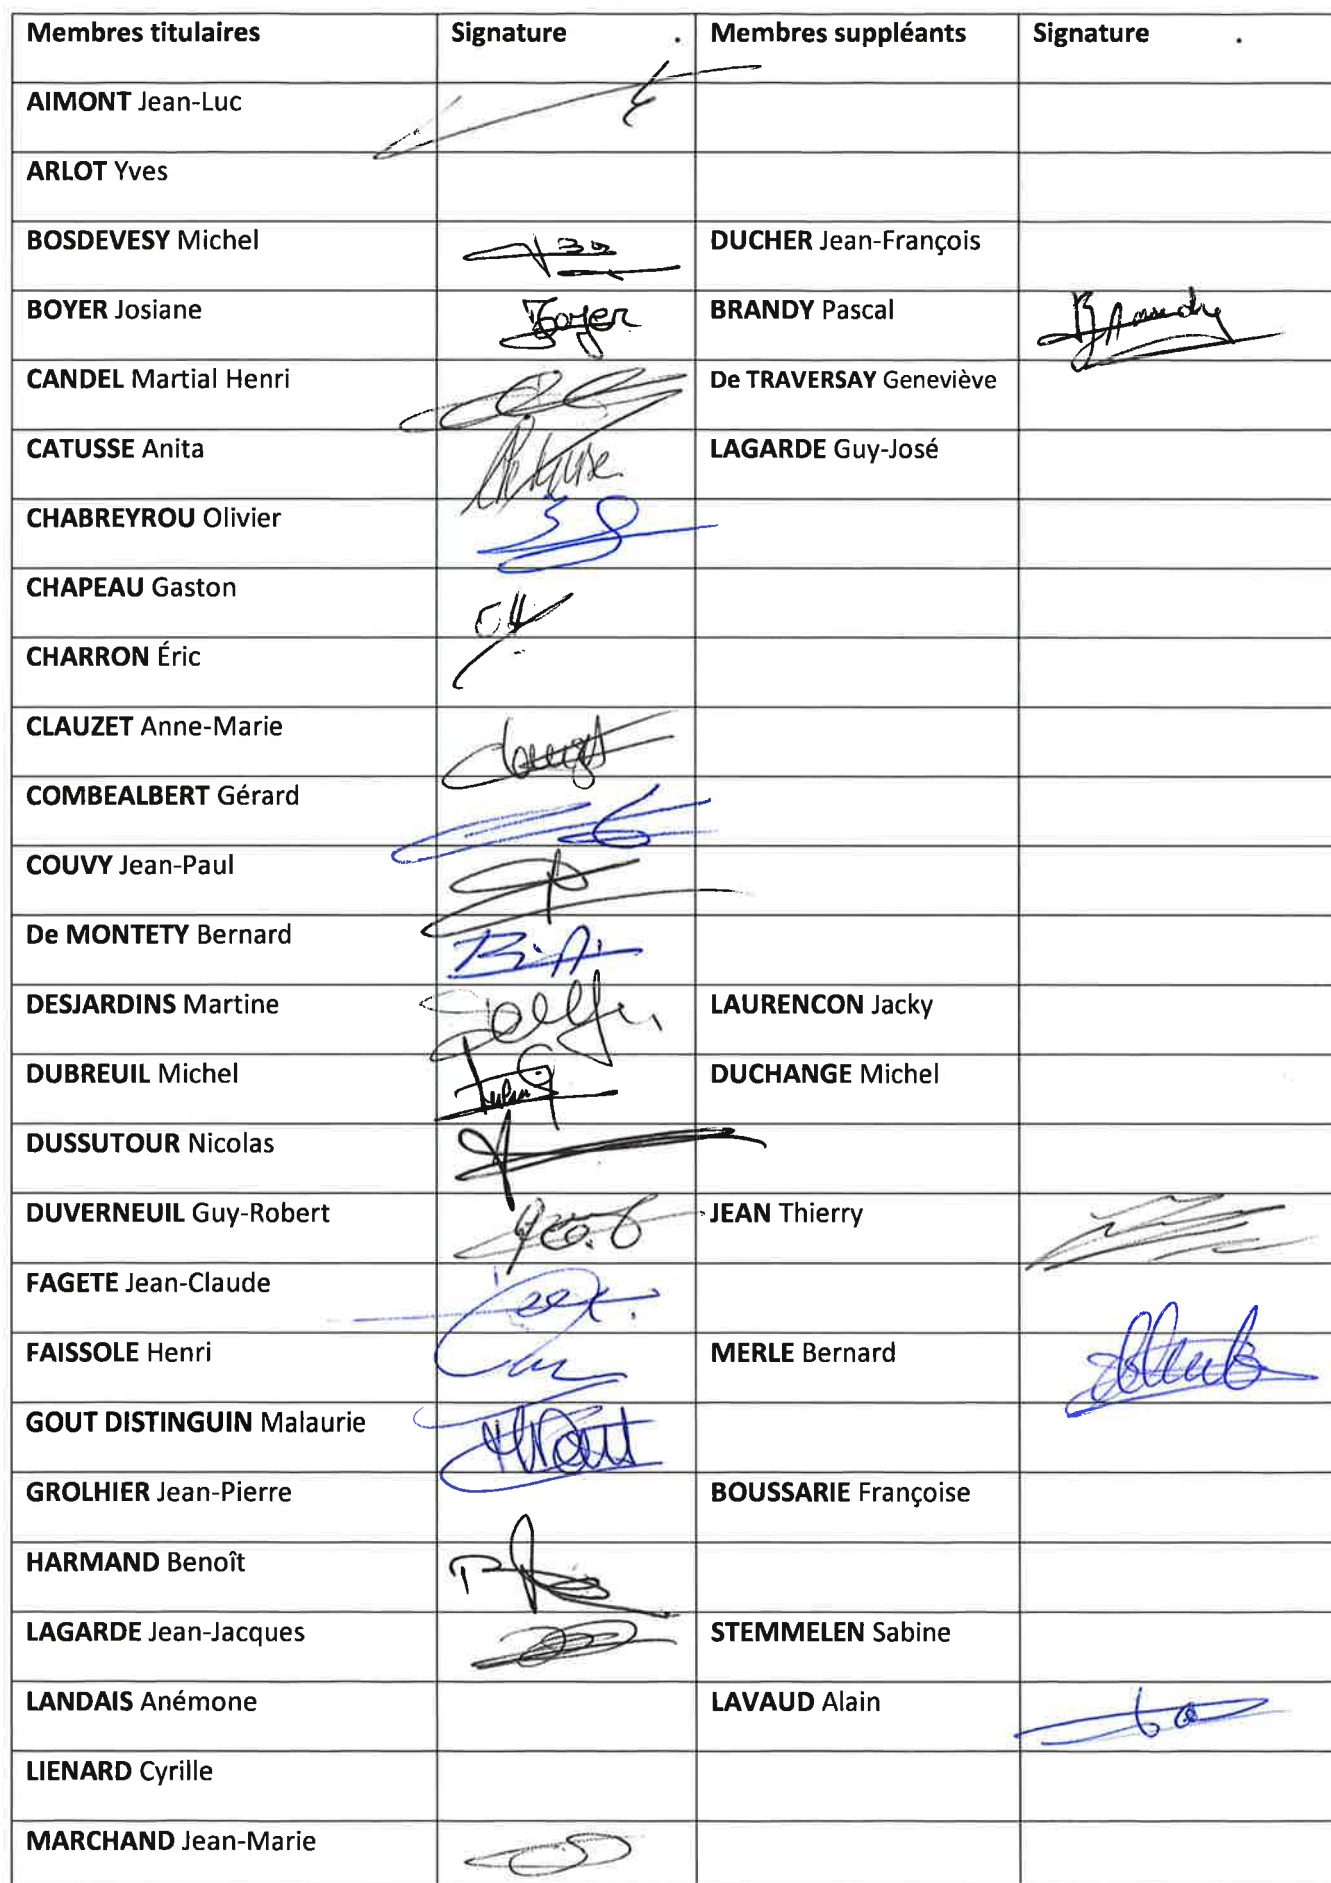 Membres titulaires Signature Membres suppléants Signature
AIMONT Jean-Luc
ARLOT Yves
BOSDEVESY Michel DUCHER Jean-François
BOYER Josiane Boyer BRANDY Pascal Brandy
CANDEL Martial Henri De TRAVERSAY Geneviève
CATUSSE Anita LAGARDE Guy-José
CHABREYROU Olivier
CHAPEAU Gaston
CHARRON Éric
CLAUZET Anne-Marie
COMBEALBERT Gérard
COUVY Jean-Paul
De MONTETY Bernard
DESJARDINS Martine LAURENCON Jacky
DUBREUIL Michel DUCHANGE Michel
DUSSUTOUR Nicolas
DUVERNEUIL Guy-Robert JEAN Thierry
FAGETE Jean-Claude
FAISSOLE Henri MERLE Bernard
GOUT DISTINGUIN Malaurie
GROLHIER Jean-Pierre BOUSSARIE Françoise
HARMAND Benoît
LAGARDE Jean-Jacques STEMMELEN Sabine
LANDAIS Anémone LAVAUD Alain
LIENARD Cyrille
MARCHAND Jean-Marie